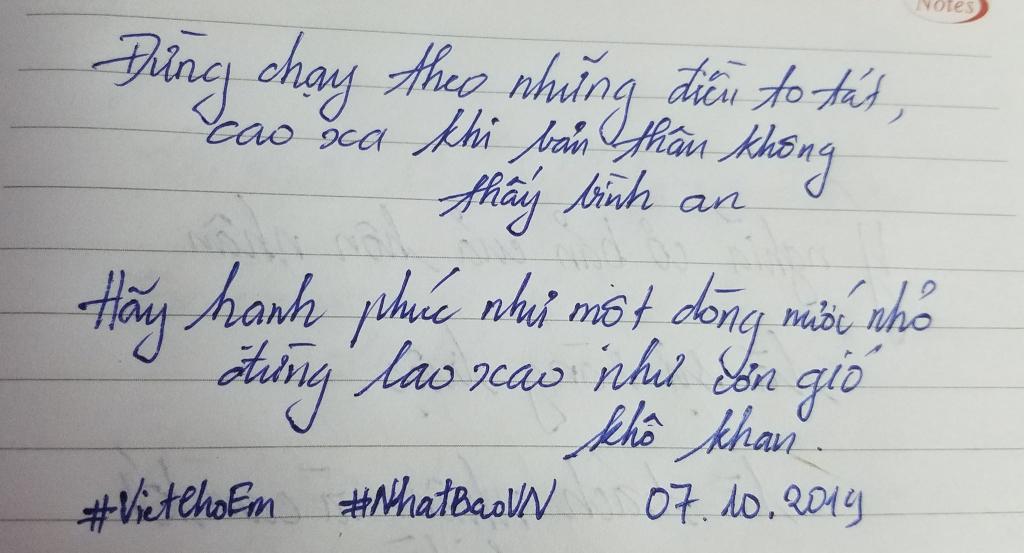 Notes
Đừng chạy theo những điều to tát,
cao xa khi bản thân không
thấy bình an
Hãy hạnh phúc như một dòng nước nhỏ
đừng lao xao như cơn gió
khô khan.
#VietchoEm #NhatBaoVN 07.10.2019